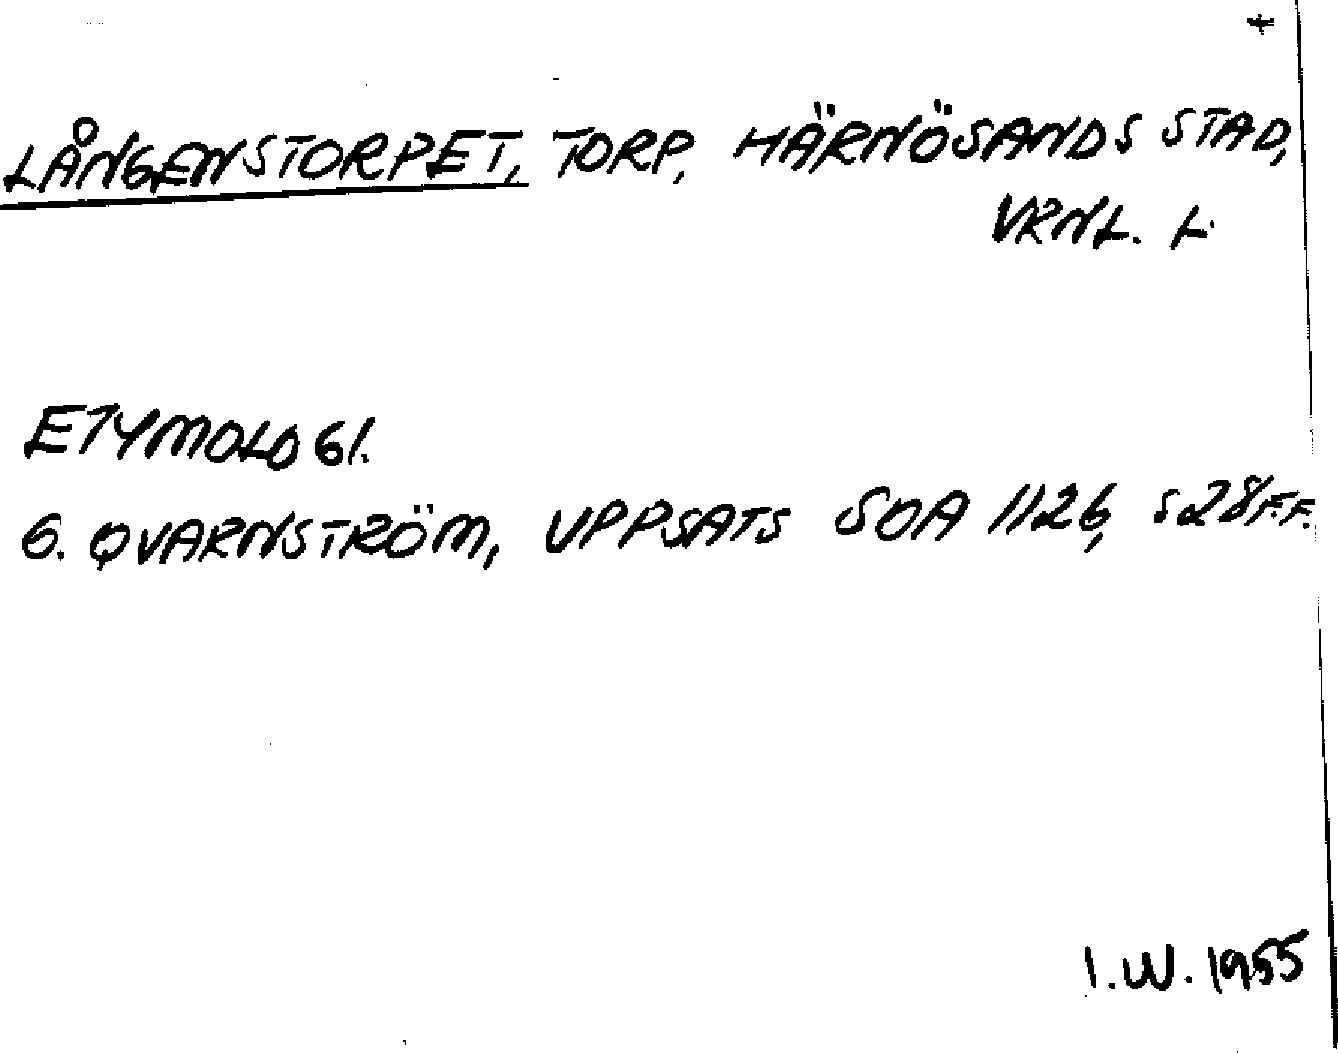 LÅNGENSTORPET, TORP, HÄRNÖSANDS STAD,
VRNL. L.
ETYMOLOGI.
G. QVARNSTRÖM, UPPSATS SOA 1126, S 28 F.F.
I.W. 1955